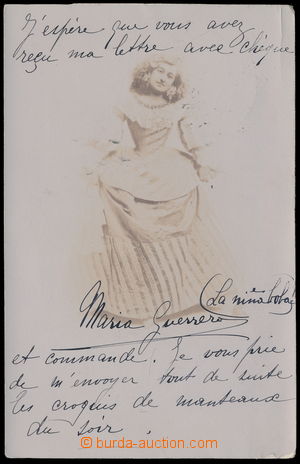 J'espère que vous avez
reçu ma lettre avec chèque
(La niña boba)
Maria Guerrero
et commande. Je vous prie
de m'envoyer tout de suite
les croquis de manteaux
du soir.
© burda-auction.com